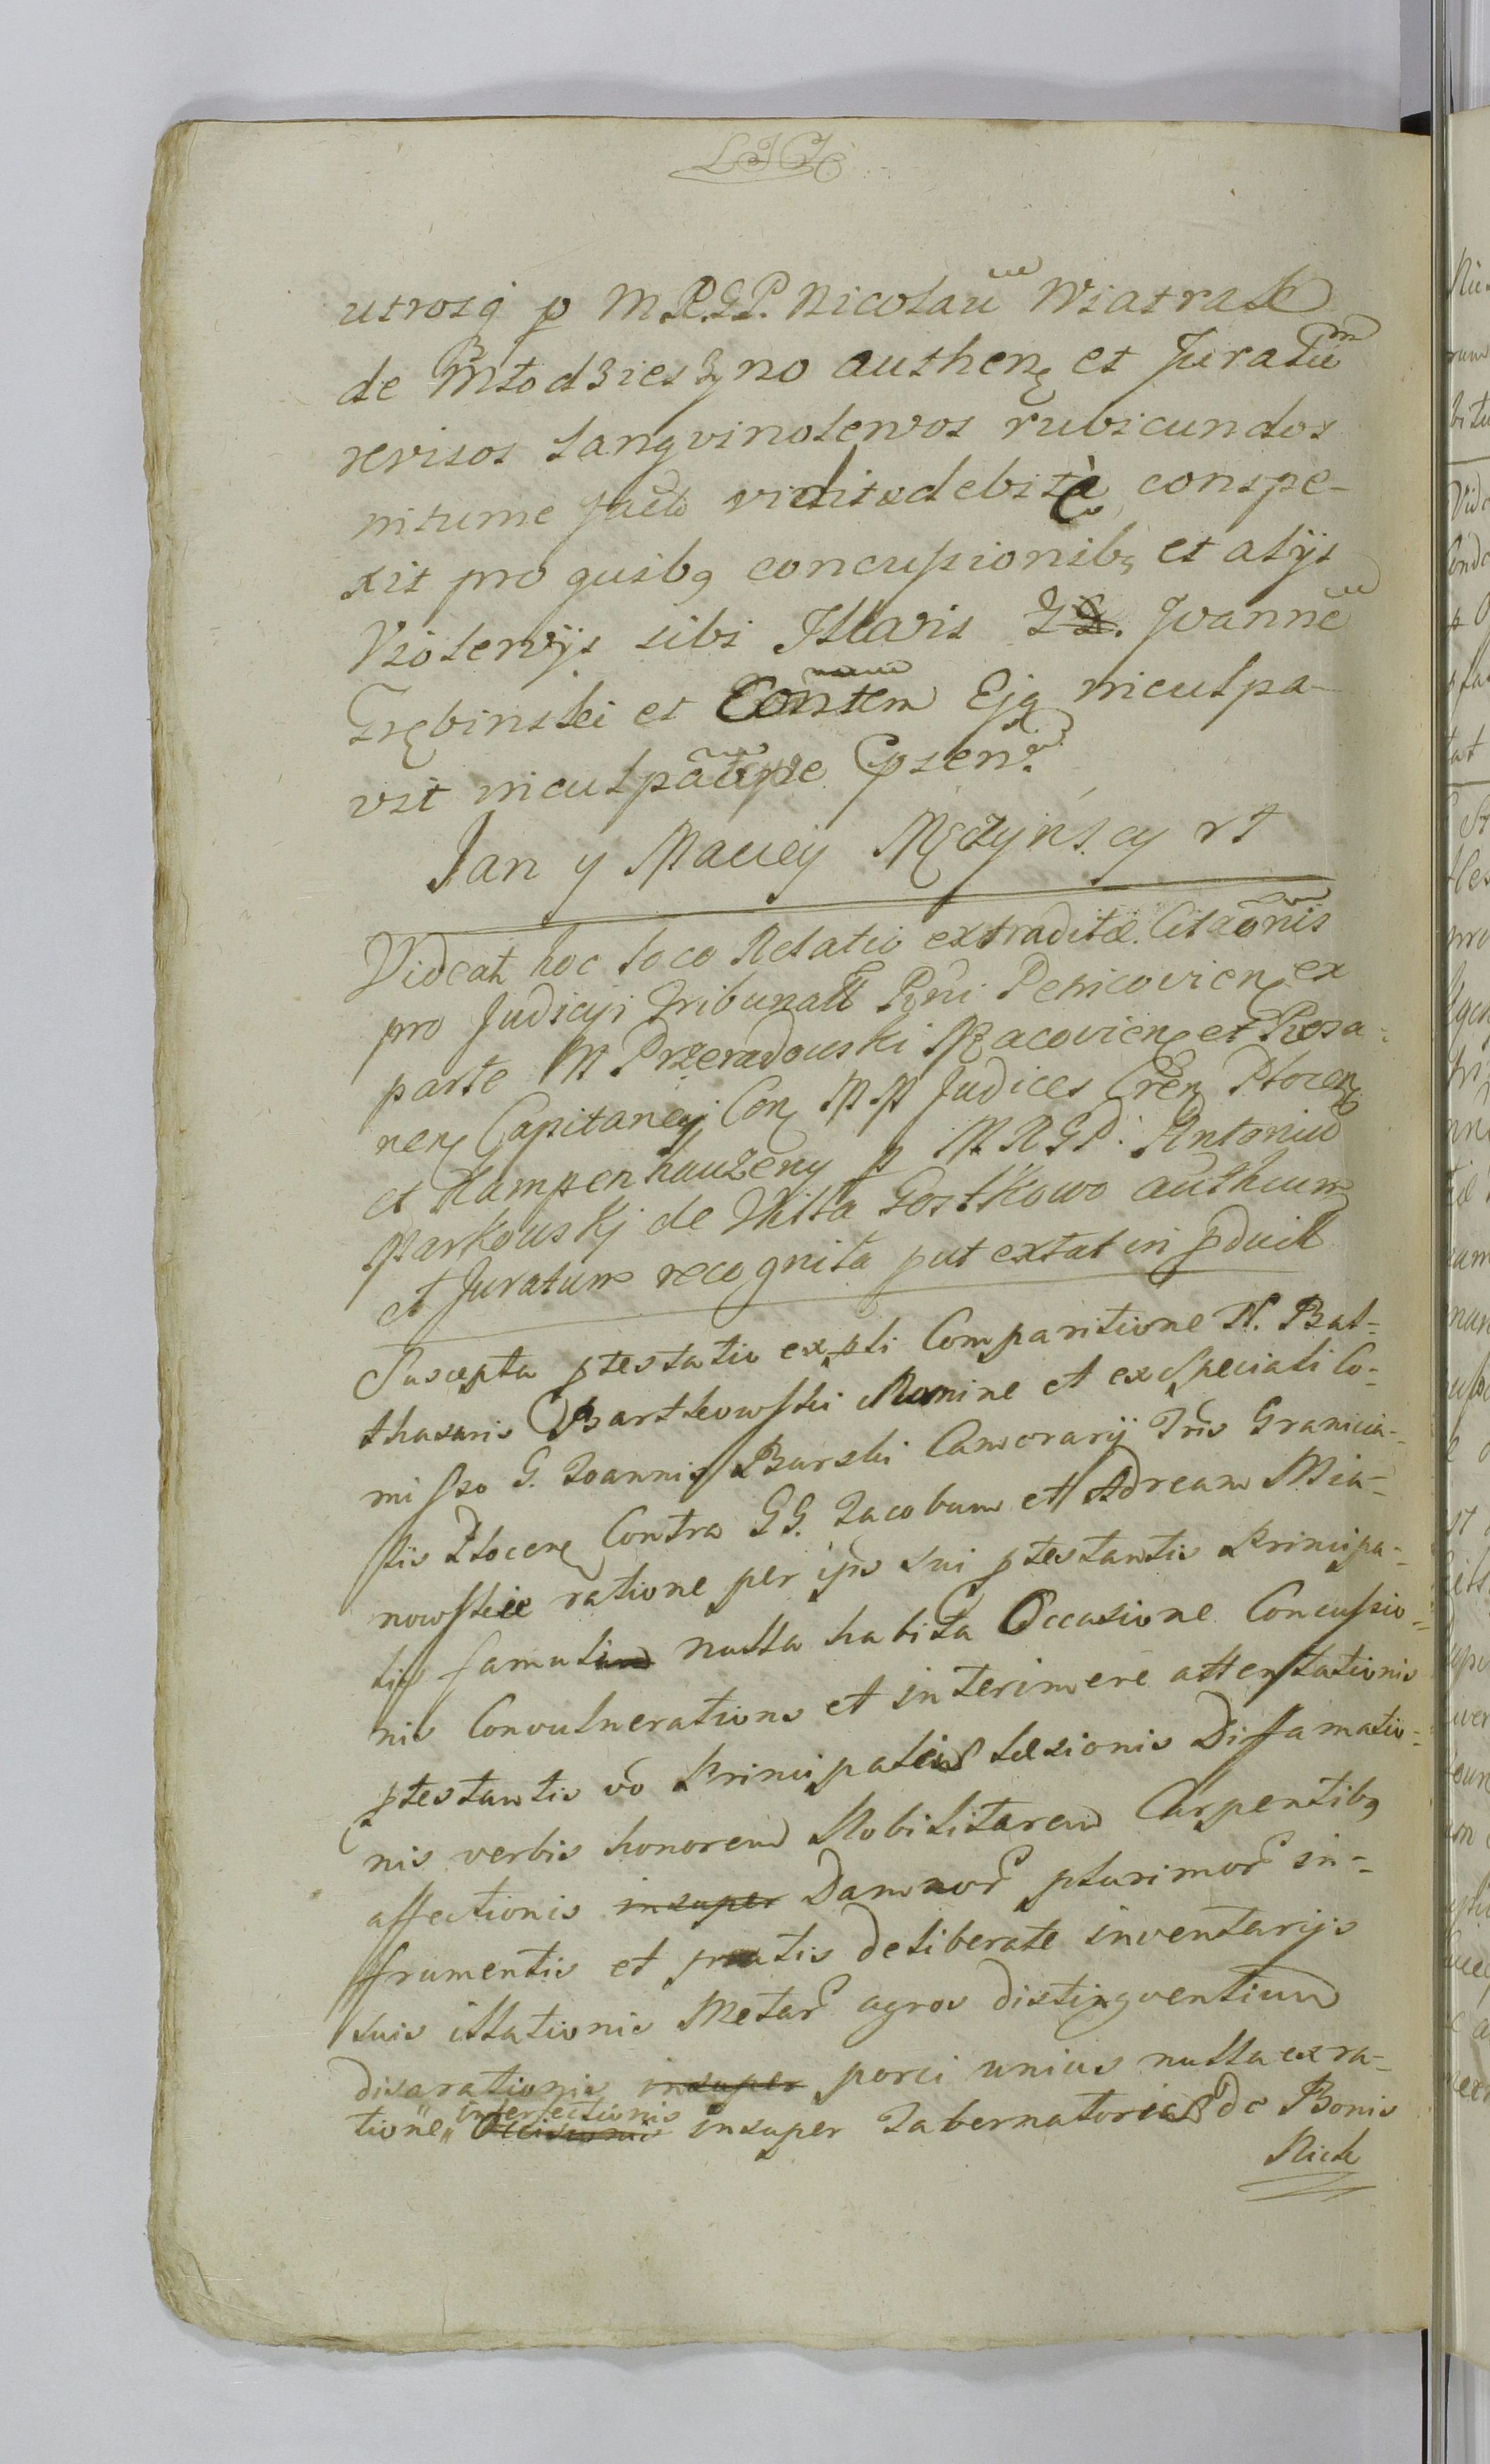 utrosq p M.R.G.P. Nicolaū Wiatrak
de Młodzieszyno authen et Juratū
revisos sangvinolentos rubicundos
vidit debite conspe-
xit pro quibq concussionibq et alijs
Violentijs sibi Illatis G. Joannē
Grębinski et Ejq inculpa-
vit
Jan y Maciey Mężyńscy
Videat hoc loco Relatio extraditæ Citaōnis
pro Judicijs Tribunall Rgni ex
parte M Przeradowski Macovien et Rosa-
nen Capitanej Con MM Judices Cren Plocen
et Kampenhauzeny p MRGP. Antoniū
Markowskj de Villa Gostkowo authum
et Juratum recognita put extat in pduill
Suscepta ptestatio ex pli Comparitione N. Bal-
thasaris Bartkowski Nomine et ex Speciali Co-
misso G. Joannis Burski Camerarij Tris Granicia-
lis Plocen Contra GG. Jacobum et Adream Mia-
nowskie ratione per ipōs sui ptestantis Principa-
lis famuli nulla habita Occasione Concussio-
nis Convulnerations et interimere attentationis
ptestantis vō Principalis læsionis Diffamatio-
nis verbis honorem Nobilitarem Carpentibq
affectionis insuper Damnor plurimor in-
frumentis et pratis deliberate inventarijs
suis illationis Metar agros distingventium
disarationis insuper porci unius nulla ex ra-
tione interfectionis Occisionis insuper Tabernatoris De Bonis
Nick